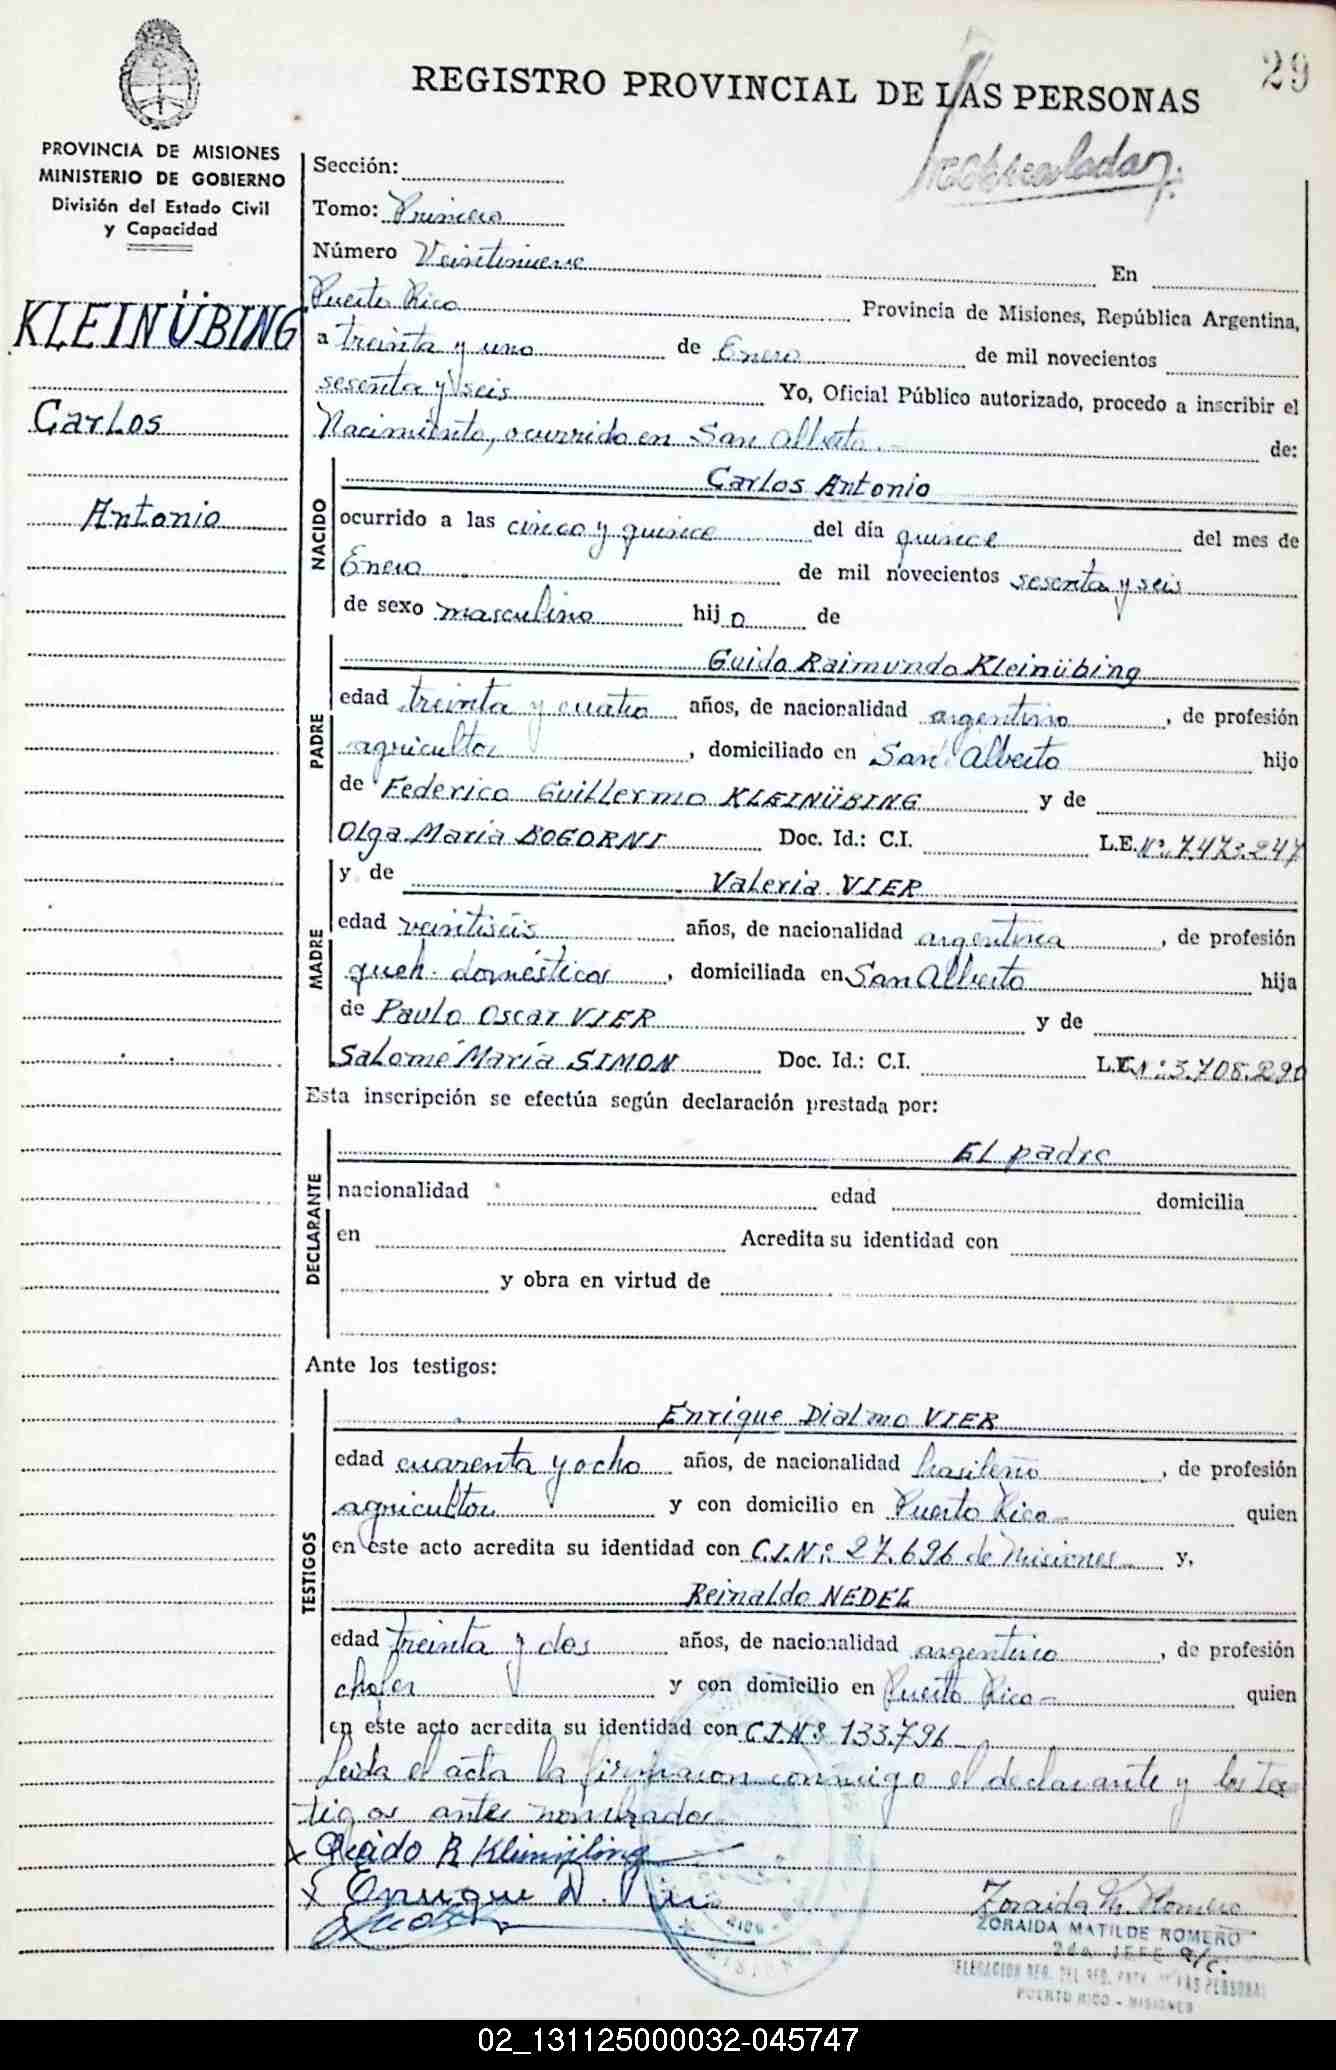 29
REGISTRO PROVINCIAL DE LAS PERSONAS
PROVINCIA DE MISIONES
MINISTERIO DE GOBIERNO
División del Estado Civil
y Capacidad
KLEINÜBING
Carlos
Antonio
Sección:
Tomo: Primero
Número Veintinueve En
Puerto Rico Provincia de Misiones, República Argentina,
a treinta y uno de Enero de mil novecientos
sesenta y seis Yo, Oficial Público autorizado, procedo a inscribir el
Nacimiento, ocurrido en San Alberto.- de:
NACIDO
Carlos Antonio
ocurrido a las cinco y quince del día quince del mes de
Enero de mil novecientos sesenta y seis
de sexo masculino hijo de
PADRE
Guido Raimundo Kleinübing
edad treinta y cuatro años, de nacionalidad argentino, de profesión
agricultor, domiciliado en San Alberto hijo
de Federico Guillermo KLEINÜBING y de
Olga María BOGORNI Doc. Id.: C.I. L.E. Nº: 7.473.247
y de Valeria VIER
MADRE
edad veintiseis años, de nacionalidad argentina, de profesión
queh. domésticos, domiciliada en San Alberto hija
de Paulo Oscar VIER y de
Salomé María SIMON Doc. Id.: C.I. L.E. Nº: 3.708.290
Esta inscripción se efectúa según declaración prestada por:
DECLARANTE
El padre
nacionalidad edad domicilia
en Acredita su identidad con
y obra en virtud de
Ante los testigos:
TESTIGOS
Enrique Dialmo VIER
edad cuarenta y ocho años, de nacionalidad brasileño, de profesión
agricultor y con domicilio en Puerto Rico- quien
en este acto acredita su identidad con C.I.Nº: 27.696 de Misiones y,
Reinaldo NEDEL
edad treinta y dos años, de nacionalidad argentino, de profesión
chofer y con domicilio en Puerto Rico- quien
en este acto acredita su identidad con C.I.Nº 133.796
Leida el acta la firmaron conmigo el declarante y los tes
tigos antes nombrados
x Guido R Kleinübing
x Enrique D. Vier
Zoraida M. Romero
ZORAIDA MATILDE ROMERO
2da JEFE a/c.
DELEGACION REG. DEL REG. PROV. DE LAS PERSONAS
PUERTO RICO - MISIONES
02_131125000032-045747